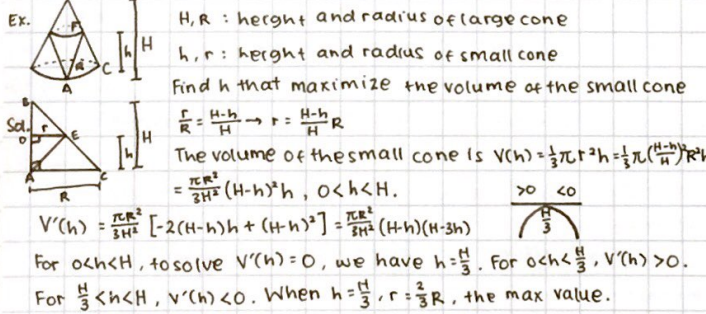 Ex. H, R : height and radius of large cone
h, r : height and radius of small cone
Find h that maximize the volume of the small cone
F h H A C
Sol. r/R = (H-h)/H → r = (H-h)/H R
B r E D h H A C R
The volume of the small cone is V(h) = 1/3 πr²h = 1/3 π((H-h)/H)²R²h
= πR²/3H² (H-h)²h , 0<h<H.
>0 <0
H/3
V'(h) = πR²/3H² [-2(H-h)h + (H-h)²] = πR²/3H² (H-h)(H-3h)
For 0<h<H, to solve V'(h) = 0, we have h = H/3. For 0<h<H/3, V'(h) >0.
For H/3 <h<H, V'(h) <0. When h = H/3, r = 2/3 R, the max value.